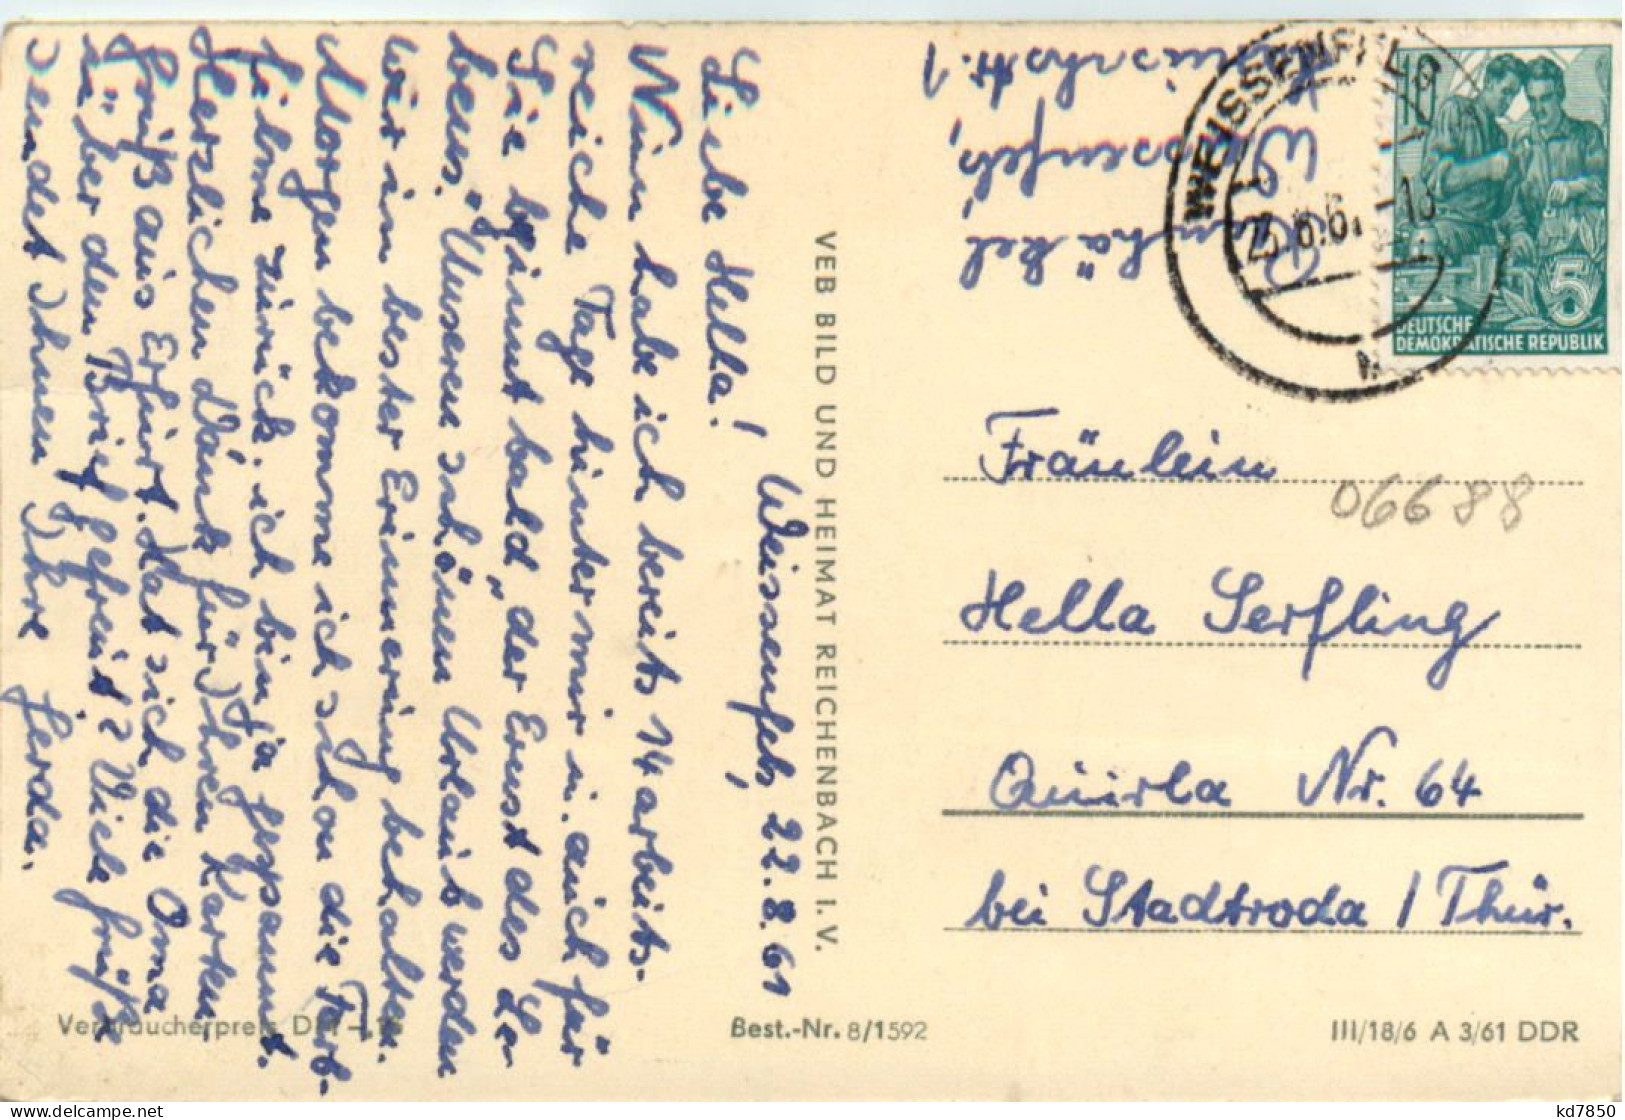 Weissenfels, 22.8.61
Liebe Hella!
Nun habe ich bereits 14 arbeits-
reiche Tage hinter mir u. auch für
Sie beginnt bald „der Ernst des Le-
bens." Unseren schönen Urlaub werden
wir in bester Erinnerung behalten.
Morgen bekomme ich schon die Farb-
filme zurück. ich bin ja gespannt.
Herzlichen Dank für Ihren Karten
gruß aus Erfurt. Hat sich die Oma
über den Brief gefreut? Viele Grüße
sendet Ihnen Ihre Gerda.
VEB BILD UND HEIMAT REICHENBACH I. V.
Weissenfels,
str. 1
WEISSENFELS
23.8.61 -18
10
5
DEUTSCHE
DEMOKRATISCHE REPUBLIK
Fräulein
066 88
Hella Serfling
Quirla Nr. 64
bei Stadtroda / Thür.
Verbraucherpreis
Best.-Nr. 8/1592
III/18/6 A 3/61 DDR
kd7850